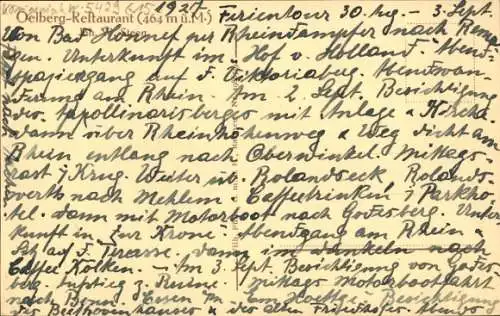 5429 615 1927
Oelberg-Restaurant (464 m ü.M.) Ferientour 30. Aug. – 3. Sept.
Von Bad Honnef per Rheindampfer nach Rema-
gen. Unterkunft im Hof v. Holland. Abend-
spaziergang auf d. Viktoriaberg. Abendwan-
derung am Rhein. Am 2. Sept. Besichtigung
des Apollinarisberges mit Anlage u. Kirche
dann über Rheinhöhenweg u. Weg dicht am
Rhein entlang nach Oberwinkel. Mittags-
rast i. Krug. Weiter üb. Rolandseck, Rolands-
werth nach Mehlem. Caffeetrinken i. Parkho-
tel. Dann mit Motorboot nach Godesberg. Unter-
kunft in "Zur Krone". Abendgang am Rhein u.
auf d. Terrasse. Dann im dunkeln nach
Caffee Kölken. – Am 3. Sept. Besichtigung von Godes-
berg. Aufstieg z. Ruine. Mittags Motorbootfahrt
nach Bonn. Essen Besichtigung
des Beethovenhauses u. des alten Friedhofes. Abends